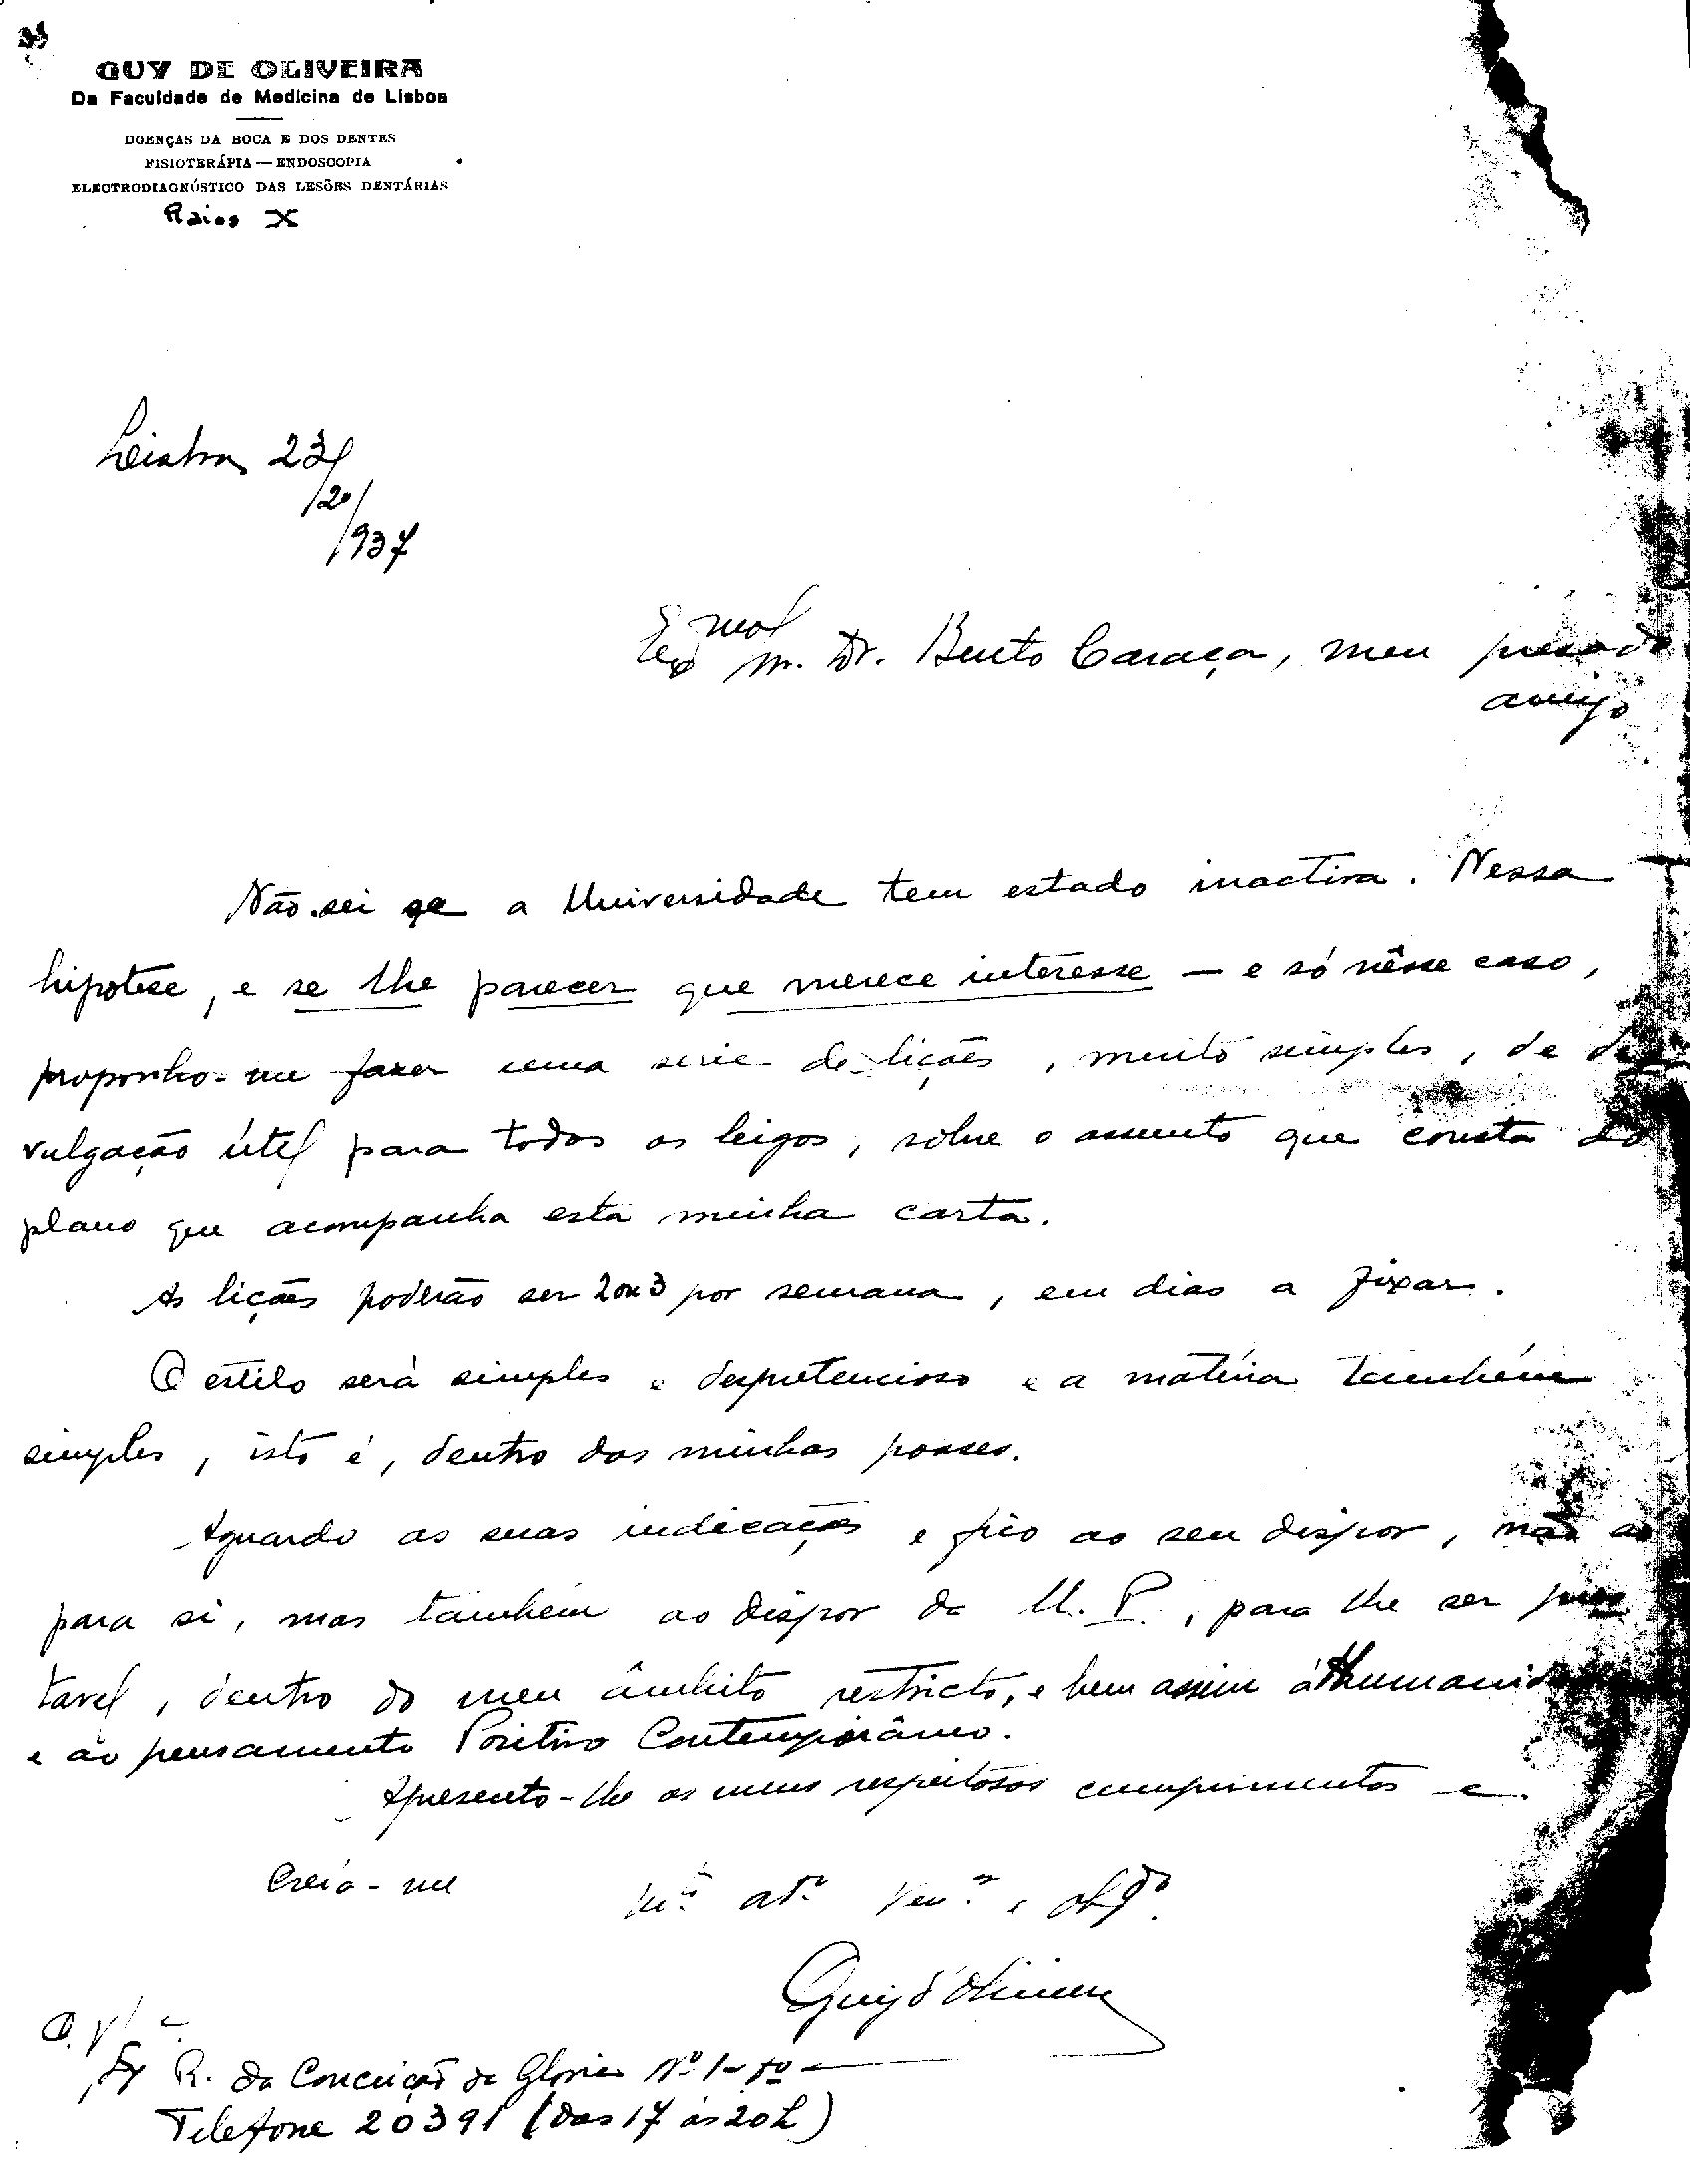 GUY DE OLIVEIRA
Da Faculdade de Medicina de Lisboa
DOENÇAS DA BOCA E DOS DENTES
FISIOTERÁPIA — ENDOSCOPIA
ELECTRODIAGNÓSTICO DAS LESÕES DENTÁRIAS
Raios X
Lisboa 23/
/937
m. Dr. Bento Caraça, meu presado
amigo
Não sei se a Universidade tem estado inactiva. Nessa
hipotese, e se lhe parecer que merece interesse — e só nêsse caso,
proponho-me fazer uma serie de lições, muito simples, de di
vulgação útil para todos os leigos, sobre o assunto que consta do
plano que acompanha esta minha carta.
As lições poderão ser 2 ou 3 por semana, em dias a fixar.
O estilo será simples e despretencioso e a matéria também
simples, isto é, dentro das minhas posses.
Aguardo as suas indicações e fico ao seu dispor, não
para si, mas também ao dispor da U. P., para lhe ser pres
tavel, dentro do meu âmbito restricto, e bem assim á Humanidade
e ao pensamento Positivo Contemporâneo.
Apresento-lhe os meus respeitosos cumprimentos e
Creia-me
Mto. atº. Venºr. e obgdo.
Guy d'Oliveira
R. da Conceição da Gloria Nº 1-
Telefone 20391 (das 17 ás 20h)